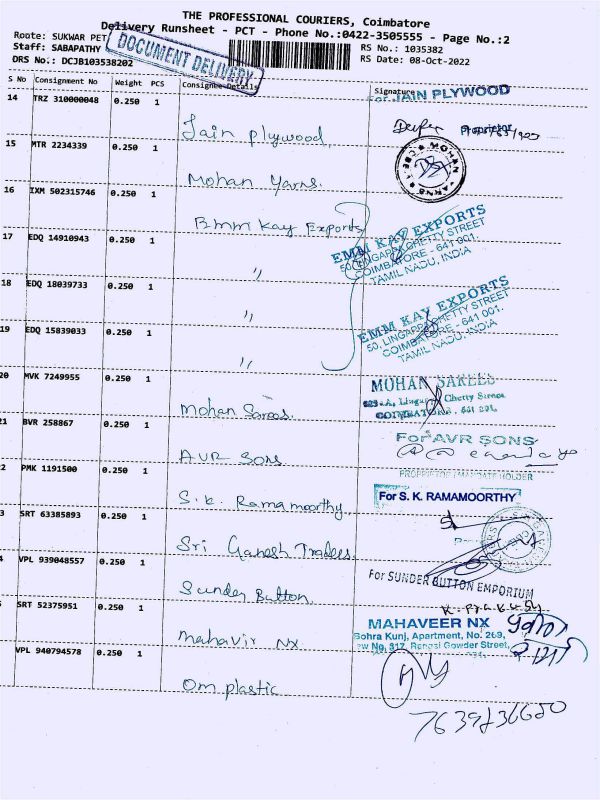 THE PROFESSIONAL COURIERS, Coimbatore
Delivery Runsheet - PCT - Phone No.:0422-3505555 - Page No.:2
Route: SUKWAR PET
RS No.: 1035382
Staff: SABAPATHY
RS Date: 08-Oct-2022
DRS No.: DCJB103538202
DOCUMENT DELIVERY
S No Consignment No Weight PCS Consignee Details Signature
14 TRZ 310000048 0.250 1 Jain plywood
For JAIN PLYWOOD
Proprietor
15 MTR 2234339 0.250 1 Mohan Yarns.
MOHAN YARNS CBE-1
16 IXM 502315746 0.250 1 Emm Kay Exports
17 EDQ 14910943 0.250 1 "
EMM KAY EXPORTS
50, LINGAPPA CHETTY STREET
COIMBATORE - 641 001.
TAMIL NADU, INDIA
18 EDQ 18039733 0.250 1 "
19 EDQ 15839033 0.250 1 "
EMM KAY EXPORTS
50, LINGAPPA CHETTY STREET
COIMBATORE - 641 001.
TAMIL NADU, INDIA
20 MVK 7249955 0.250 1 Mohan Sarees.
MOHAN SAREES
Chetty Street
COIMBATORE. 641 001.
21 BVR 258867 0.250 1 AVR Sons
For AVR SONS
PROPRIETOR / MANDATE HOLDER
2 PMK 1191500 0.250 1 S.k. Ramamoorthy
For S. K. RAMAMOORTHY
3 SRT 63385893 0.250 1 Sri Ganesh Traders.
4 VPL 939048557 0.250 1 Sunder Button
For SUNDER BUTTON EMPORIUM
5 SRT 52375951 0.250 1 Mahavir NX
MAHAVEER NX
Bohra Kunj, Apartment, No. 269,
New No. 317, Rangai Gowder Street,
VPL 940794578 0.250 1 Om plastic